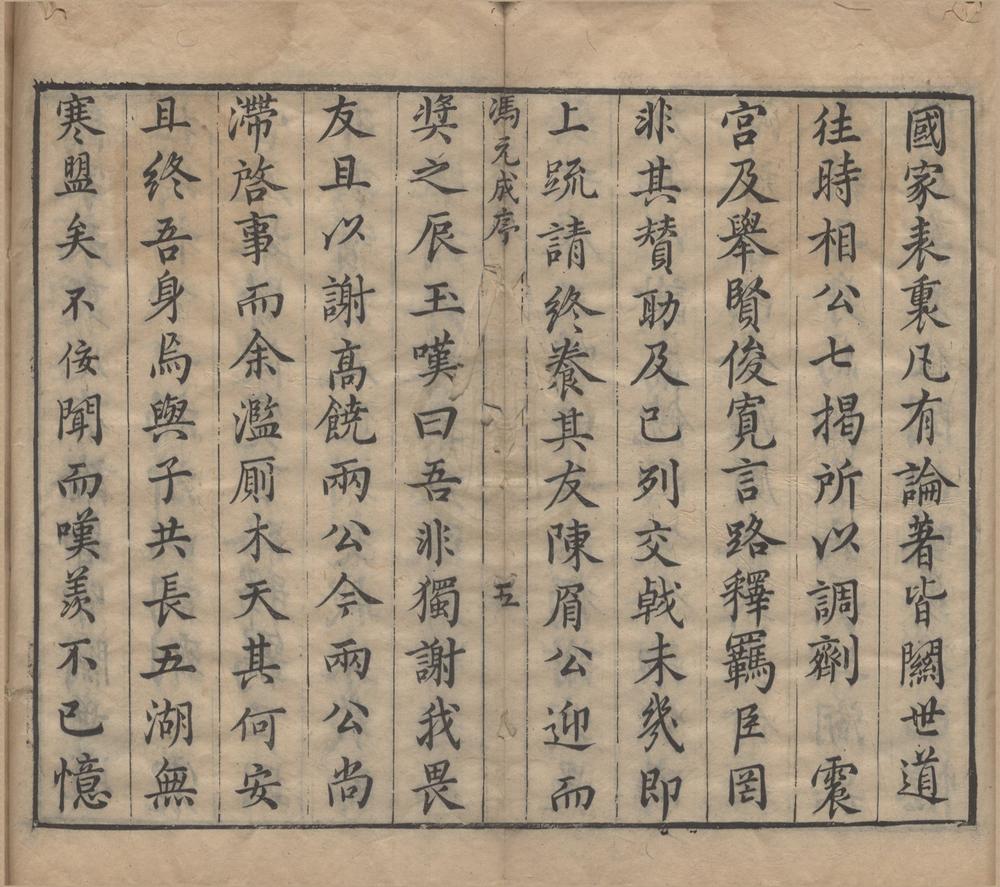 國家表裏凡有論著皆關世道
徃時相公七揭所以調劑 震
宮及舉賢俊寬言路釋羈臣罔
非其贊助及已列交戟未幾即
上疏請終養其友陳眉公迎而
馮元成序 五
奬之辰玉嘆曰吾非獨謝我畏
友且以謝高饒兩公今兩公尚
滯啓事而余濫厠木天其何安
且終吾身烏與子共長五湖無
寒盟矣不佞聞而嘆羨不已憶